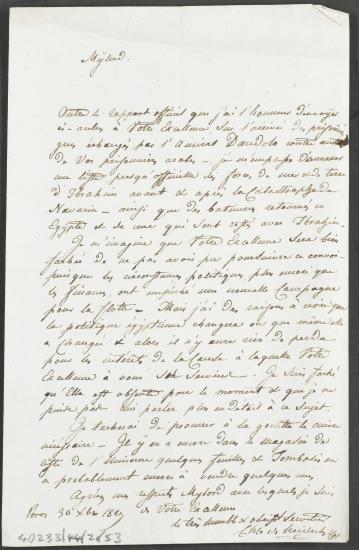 Mylord.
Outre le rapport officiel que j'ai l'honneur d'envoyer
à Votre Excellence, sur l'arrivée des prisonniers
grecs échangés par l'Amiral contre
de Vos prisonniers arabes - je m'empresse d'annexer
une liste presqu'officielle des forces de mer et de terre
d'Ibrahim avant et après la catastrophe de
Navarin - ainsi que des batimens retournés en
Egypte et de ceux qui sont restés avec Ibrahim.
Je m'imagine que Votre Excellence sera bien
fachée de ne pas avoir pu poursuivre ce convoi
puisque les circonstances politiques plus encore que
les finances, ont empêché une nouvelle Campagne
pour la flotte - Mais j'ai des raisons à croire que
la politique egyptienne changera ou que même elle
a changée et alors il n'y aura rien de perdu
pour les intérêts de la Cause à laquelle Votre
Excellence a voué Son Service. Je suis faché
qu'Elle est absente pour le moment et que je ne
puisse pas lui parler plus en détail à ce Sujet.
Je tacherai de procurer à la goelette le cuivre
nécessaire - Il y en a encore dans le magasin de
quelques feuilles et Tombasi en
a probablement encore à vendre quelques unes.
Agréez mes respects Mylord avec lesquels je suis
Poros 30 Xbre 182
de Votre Excellence
le très humble et obéist Serviteur
4D233/44/2/53